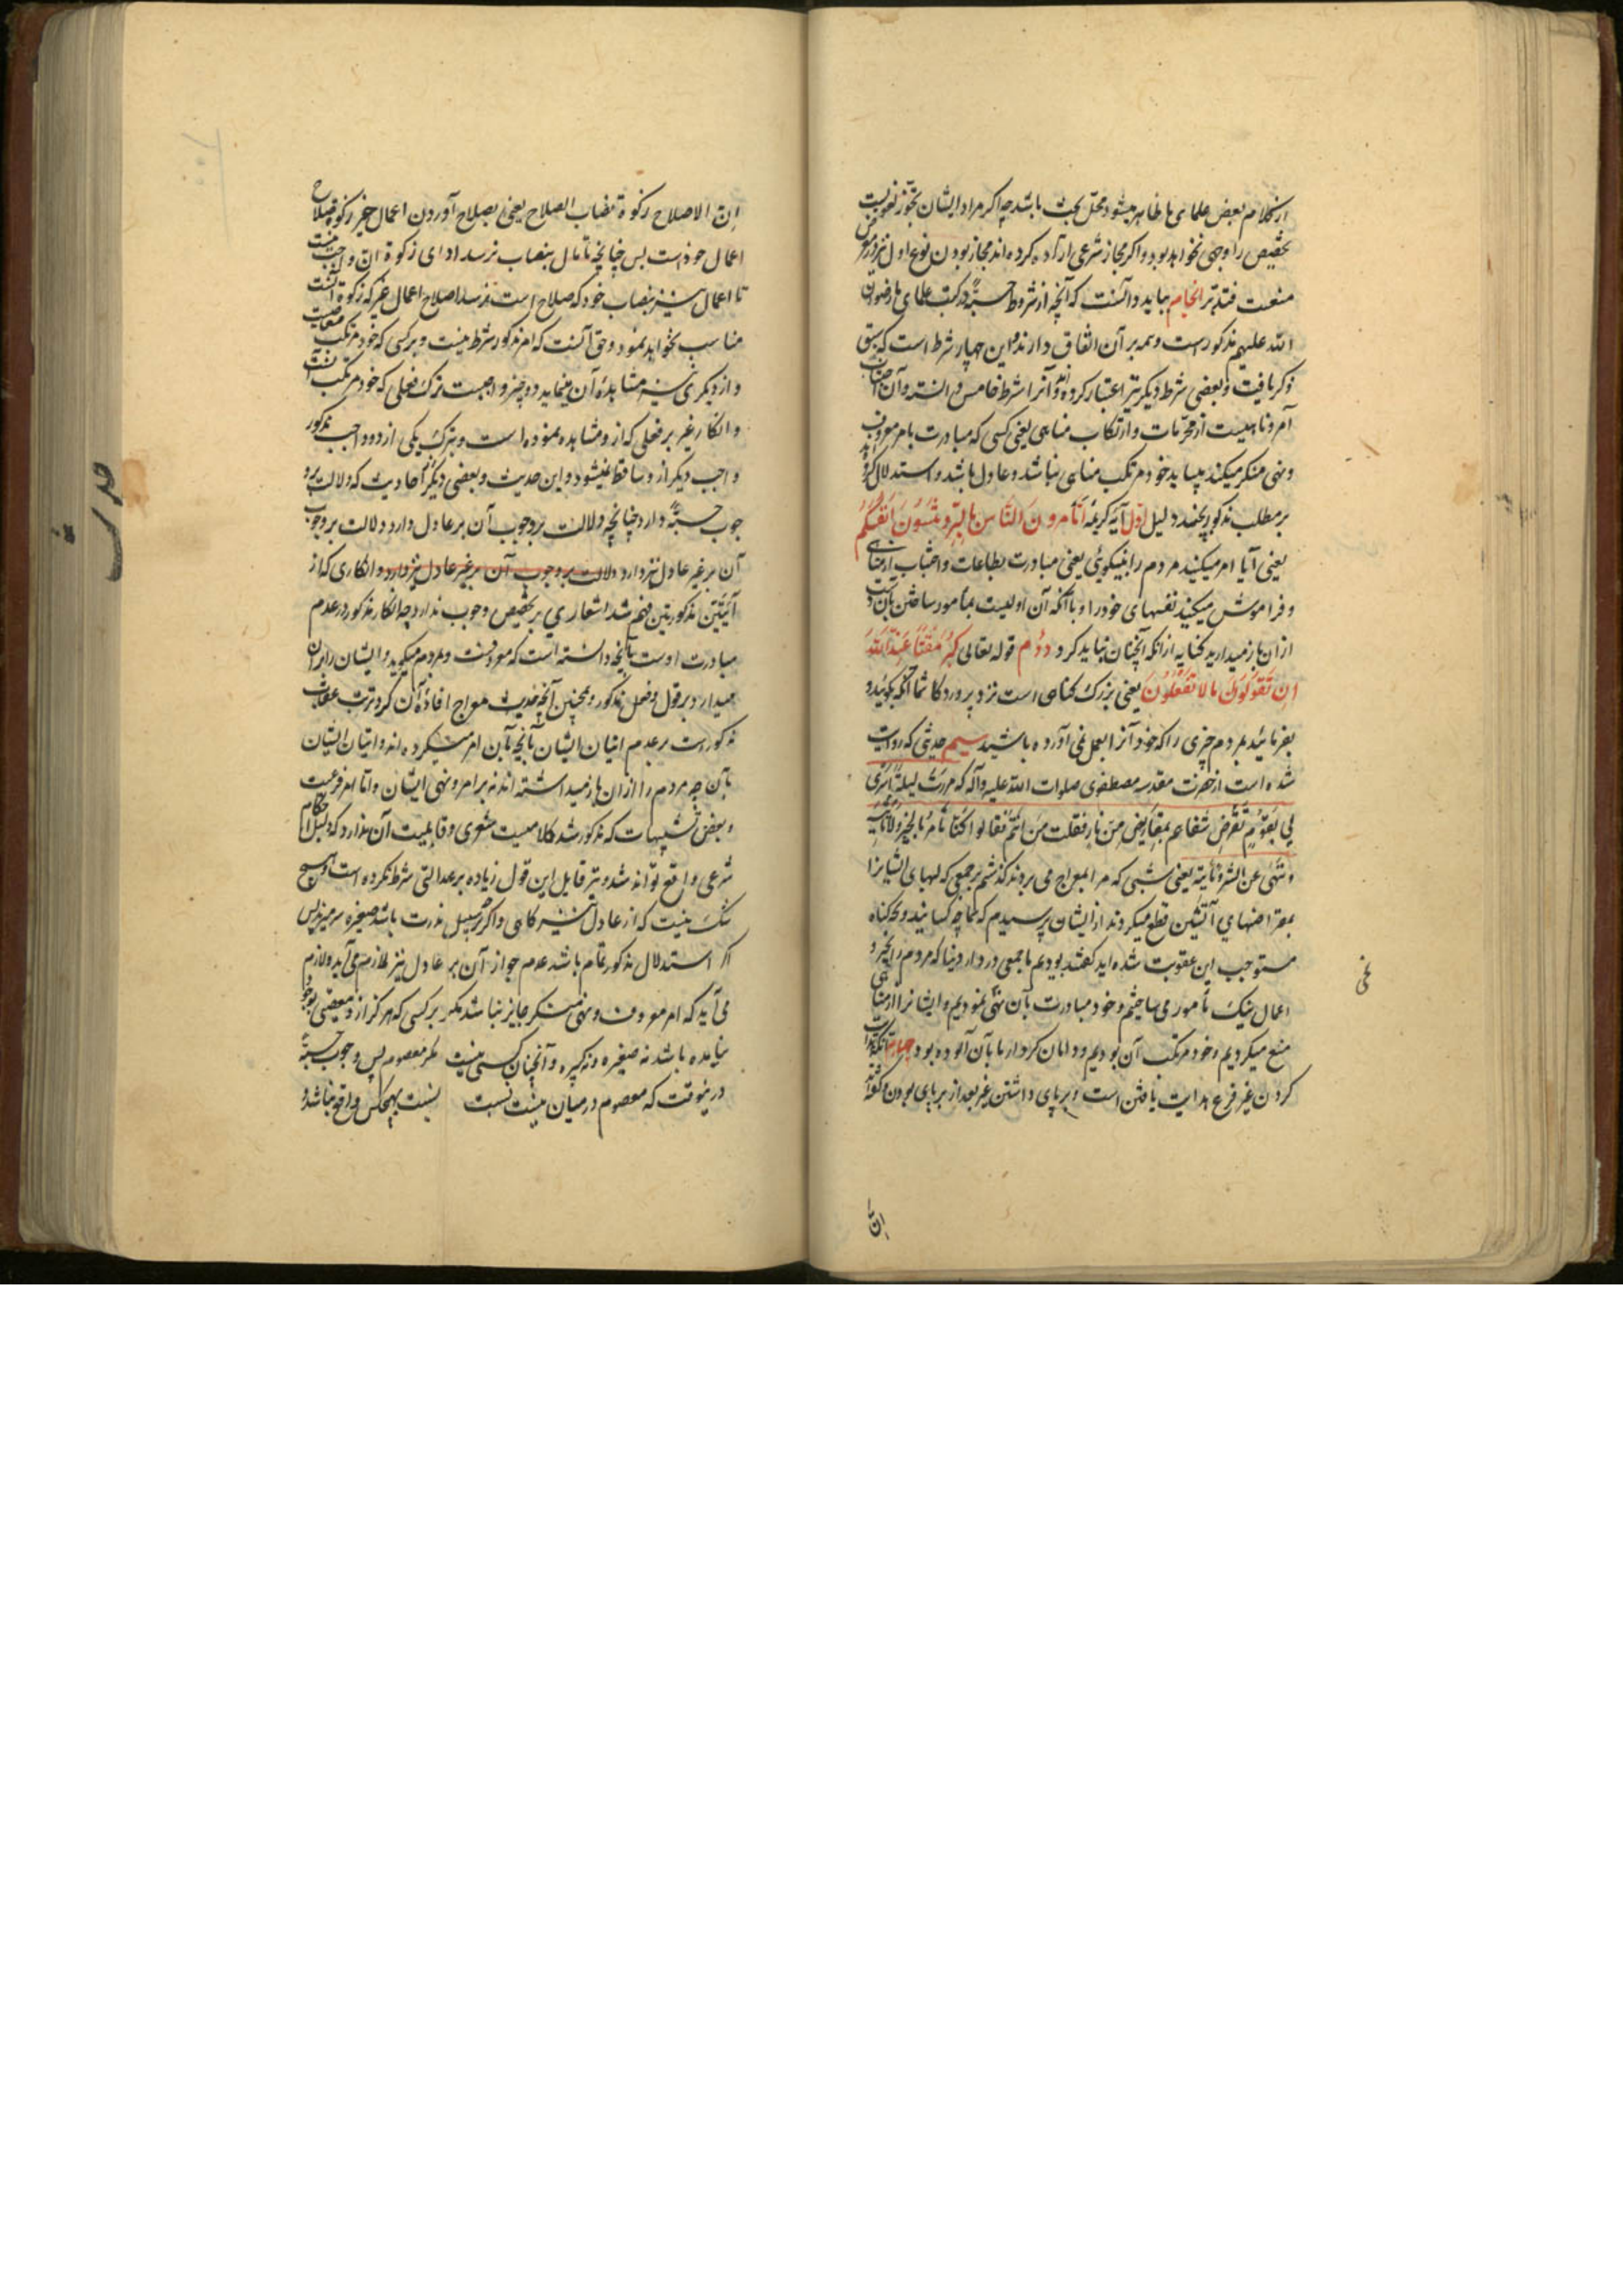 از کلام بعض علمای ما ظاهر میشود محل بحث باشد چه اکر مراد ایشان تجوز لغویست
تخصیص را وجهی نخواهد بود و اکر مجاز شرعی اراده کرده اند مجاز بودن نوع اول نیز در معرض
منعست فتدبر انجام بباید دانست که آنچه از شروط حسبةً در کتب علمای ما رضوان
الله علیهم مذکورست و همه بر آن اتفاق دارند این چهار شرط است که سبق
ذکر یافت و بعضی شرط دیکر نیز اعتبار کرده اند و آنرا شرط خامس دانسته و آن اجتناب
آمر و ناهیست از محرمات و ارتکاب مناهی یعنی کسی که مبادرت بامر معروف
و نهی منکر میکند میباید خود مرتکب مناهی نباشد و عادل باشد و استدلال کرده اند
بر مطلب مذکور بچند دلیل اول آیه کریمه أتأمرون الناس بالبر و تنسون انفسکم
یعنی آیا امر میکنید مردم را بنیکویی یعنی مبادرت بطاعات و اجتناب از مناهی
و فراموش میکنید نفسهای خود را و با آنکه آن اولیست بمأمور ساختن بآن
از ان باز میدارید کنایه از انکه آنچنان نباید کرد دوم قوله تعالی کبر مقتاً عند الله
ان تقولون ما لا تفعلون یعنی بزرک کناهی است نزد پروردکار شما آنکه بکوئید و
بفرمائید بمردم چیزی را که خود آنرا بعمل نمی آورده باشید سیم حدیثی که روایت
شده است از حضرت مقدسه مصطفوی صلوات الله علیه و آله که مررت لیلة أسری
لی بقوم تقرض شفاههم بمقاریض من نار فقلت من انتم فقالوا کنا نأمر بالخیر و لا نأتیه
و ننهی عن الشر و نأتیه یعنی شبی که مرا بمعراج می بردند کذشتم بر جمعی که لبهای ایشانرا
بمقراضهای آتشین قطع میکردند از ایشان پرسیدم که شما چه کسانید و بچه کناه
مستوجب این عقوبت شده اید کفتند بودیم ما جمعی در دار دنیا که مردم را بخیر و
اعمال نیک مأمور می ساختیم و خود مبادرت بآن نمی نمودیم و ایشانرا از مناهی
منع میکردیم و خود مرتکب آن بودیم و دامان کردار ما بآن آلوده بود چهارم آنکه هدایت
کردن غیر فرع هدایت یافتن است و برپای داشتن غیر بعد از برپای بودن و کفته اند
نمی
ان
ان الاصلاح زکوة نصاب الصلاح یعنی بصلاح آوردن اعمال غیر زکوة صلاح
اعمال خودست پس چنانچه تا مال بنصاب نرسد ادای زکوة ان واجب نیست
تا اعمال نیز بنصاب خود که صلاح است نرسد اصلاح اعمال غیر که زکوة آنست
مناسب نخواهد نمود و حق آنست که امر مذکور شرط نیست و بر کسی که خود مرتکب معاصیست
و از دیکری نیز مشاهده آن مینماید دو چیز واجبست ترک فعلی که خود مرتکب آنست
و انکار غیر بر فعلی که از و مشاهده نموده است و بترک یکی از دو واجب مذکور
واجب دیکر از و ساقط نمیشود و این حدیث و بعضی دیکر احادیث که دلالت بر و
جوب حسبةً دارد چنانچه دلالت بر وجوب آن بر عادل دارد دلالت بر وجوب
آن بر غیر عادل نیز دارد دلالت بر وجوب آن بر غیر عادل نیز دارد و انکاری که از
آیتین مذکورتین فهم شد اشعاری بر تخصیص وجوب ندارد چه انکار مذکور در عدم
مبادرت اوست بآنچه دانسته است که معروفست و بمردم میکوید و ایشان را بران
میدارد بر قول و فعل مذکور و همچنین آنچه حدیث معراج افاده آن کرد ترتب عقوبت
مذکورست بر عدم اتیان ایشان بآنچه بآن امر میکرده اند و اتیان ایشان
بآن چه مردم را از ان باز میداشته اند نه بر امر و نهی ایشان و اما امر فرعیت
و بعض تشبیهات که مذکور شد کلامیست شعری و قابلیت آن ندارد که دلیل احکام
شرعی واقع تواند شد و نیز قایل این قول زیاده بر عدالتی شرط نکرده است و هیچ
شک نیست که از عادل نیز کاهی و اکر بر سبیل ندرت باشد صغیره سر میزند پس
اکر استدلال مذکور تمام باشد عدم جواز آن بر عادل نیز لازم می آید و لازم
می آید که امر معروف و نهی منکر جایز نباشد مکر بر کسی که هرکز از و معصیتی بوجود
نیامده باشد نه صغیره و نه کبیره و آنچنان کسی نیست مکر معصوم پس وجوب حسبةً
درینوقت که معصوم در میان نیست نسبت بهیچکس واقع نباشد و